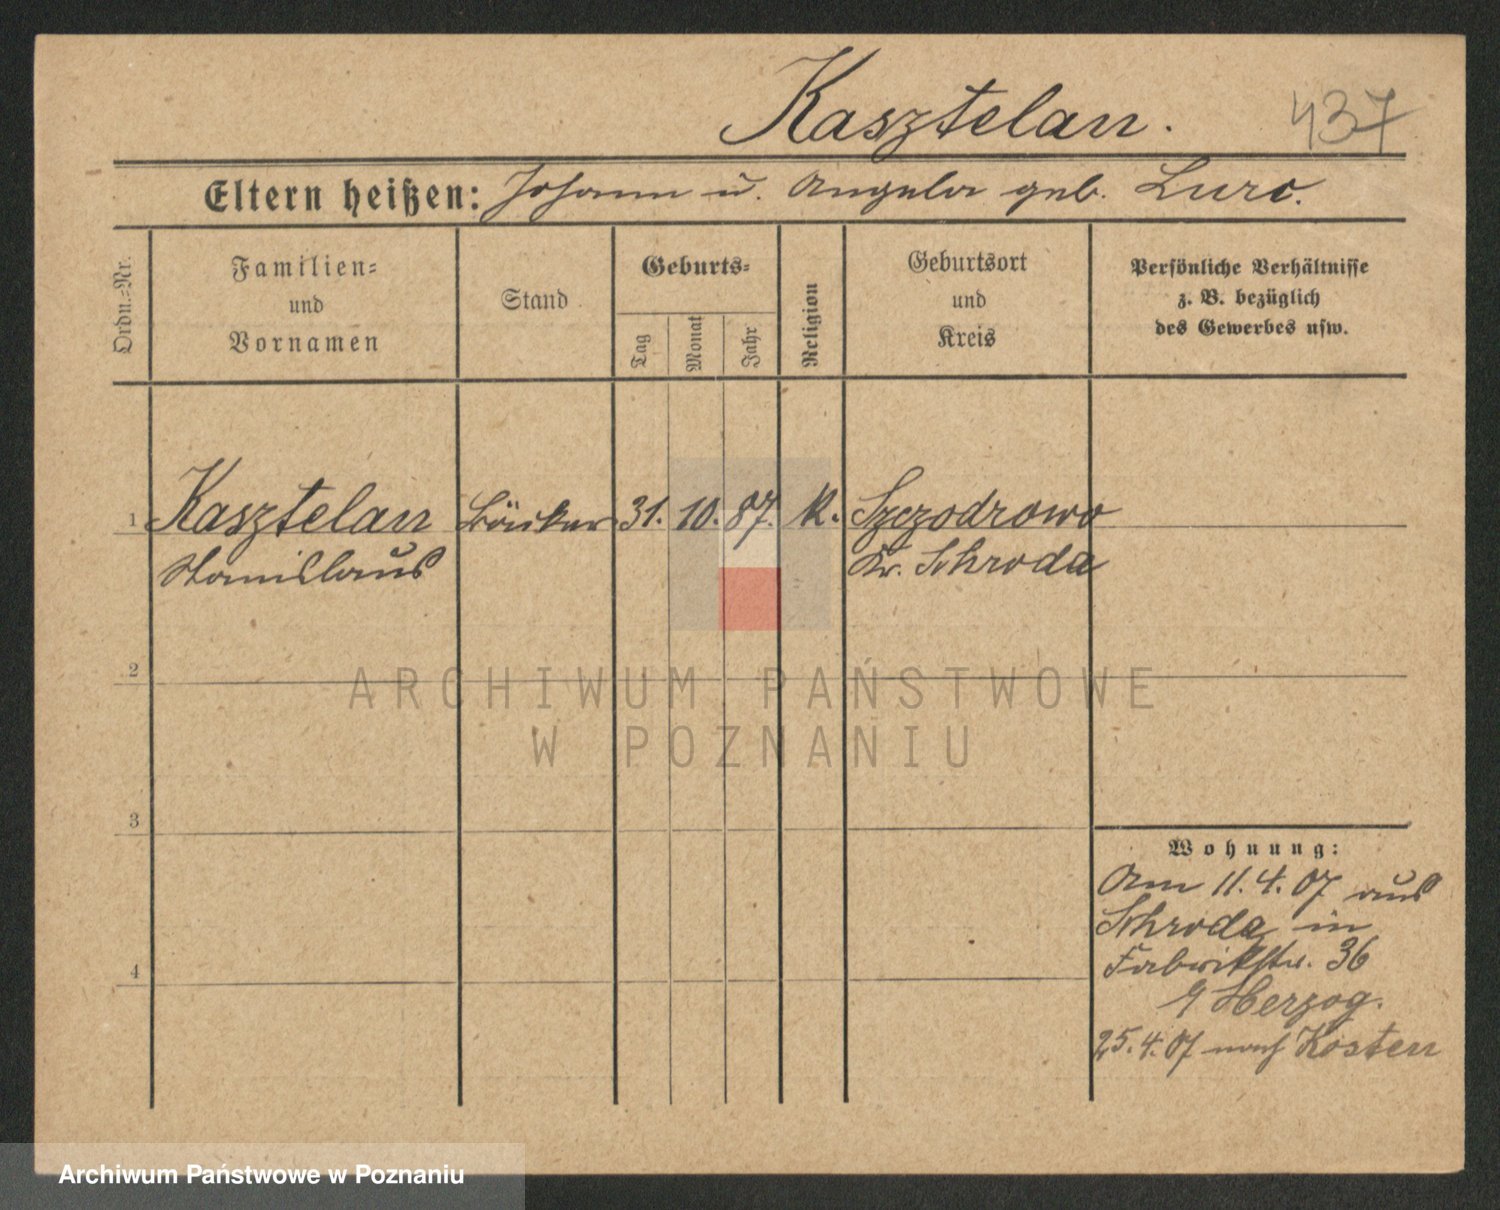 Kasztelan.
437
Eltern heißen: Johann u. Angela geb. Lurc.
Ordn.-Nr.
Familien-
und
Vornamen
Stand
Geburts-
Tag
Monat
Jahr
Religion
Geburtsort
und
Kreis
Persönliche Verhältnisse
z. B. bezüglich
des Gewerbes usw.
1 Kasztelan 31. 10. 87. K. Szczodrowo
Stanislaus Kr. Schroda
2
3
4
Wohnung:
Am 11.4.07 aus
Schroda in
Fabrikstr. 36
Herzog.
25.4.07 nach Kosten
ARCHIWUM PAŃSTWOWE
W POZNANIU
Archiwum Państwowe w Poznaniu